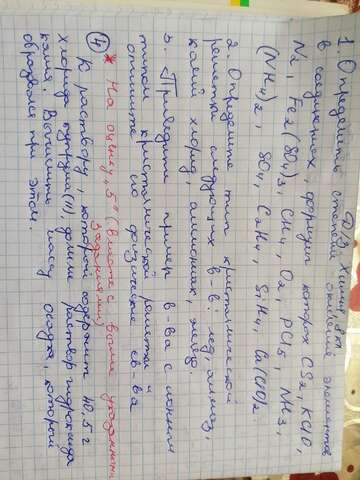 Д/З Химия 8кл
1. Определить степени окисления элементов
в соединениях, формулы которых CS2, KClO,
N2, Fe2(SO4)3, CH4, O2, PCl5, NH3,
(NH4)2, SO4, C2H4, SiH4, Ca(ClO)2.
2. Определите тип кристаллической
решетки следующих в-в: лед, алмаз,
калий хлорид, аммиак, железо.
3. Приведите пример в-ва с ионным
типом кристаллической решётки и
опишите его физические св-ва
* На оценку "5" (вместе с выше указанными
заданиями)
4 К раствору, который содержит 40,5 г
хлорида купрума (II), долили раствор гидроксида
калия. Вычислить массу осадка, который
образовался при этом.